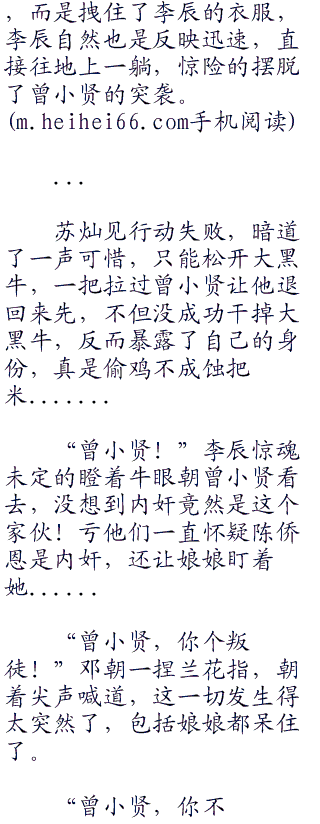 ，而是拽住了李辰的衣服，
李辰自然也是反映迅速，直
接往地上一躺，惊险的摆脱
了曾小贤的突袭。
(m.heihei66.com手机阅读)
...
苏灿见行动失败，暗道
了一声可惜，只能松开大黑
牛，一把拉过曾小贤让他退
回来先，不但没成功干掉大
黑牛，反而暴露了自己的身
份，真是偷鸡不成蚀把
米.......
“曾小贤！”李辰惊魂
未定的瞪着牛眼朝曾小贤看
去，没想到内奸竟然是这个
家伙！亏他们一直怀疑陈侨
恩是内奸，还让娘娘盯着
她......
“曾小贤，你个叛
徒！”邓朝一捏兰花指，朝
着尖声喊道，这一切发生得
太突然了，包括娘娘都呆住
了。
“曾小贤，你不